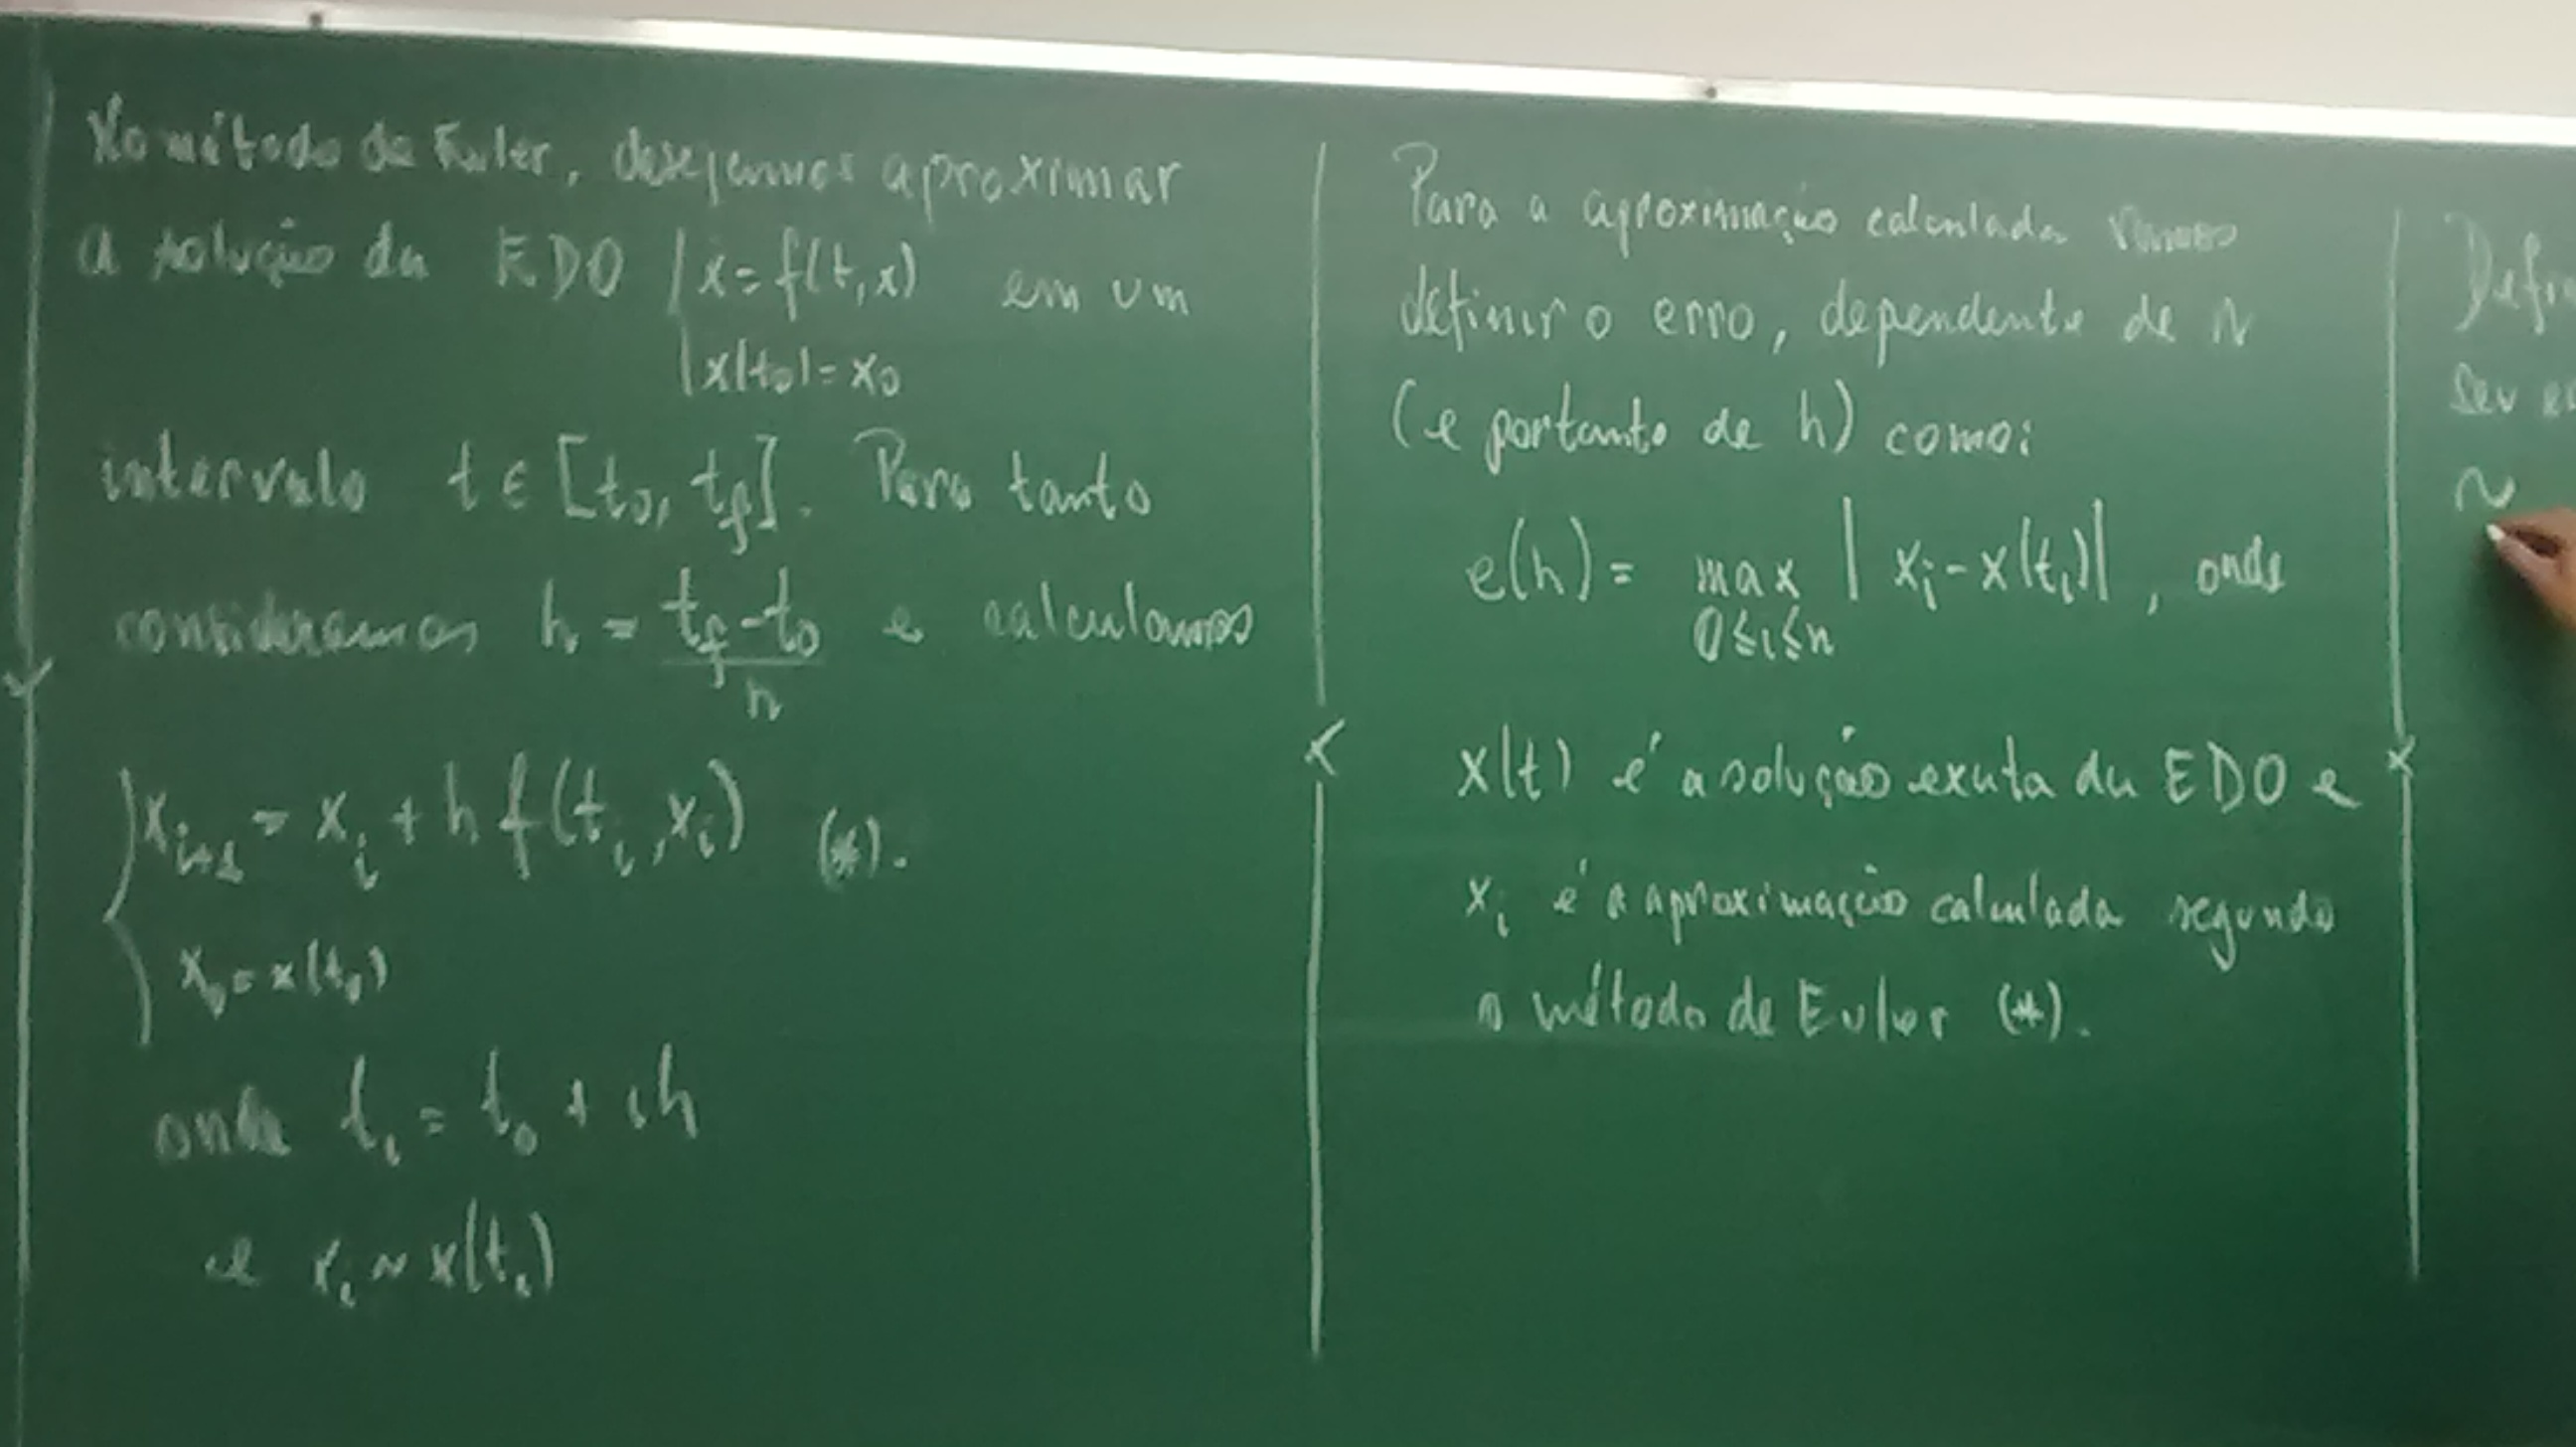 No método de Euler, desejamos aproximar
a solução da EDO { ẋ = f(t,x) em um
x(t₀) = x₀
intervalo t ∈ [t₀, t_f]. Para tanto
consideramos h = (t_f - t₀)/n e calculamos
{ x_{i+1} = x_i + h f(t_i, x_i) (*).
x₀ = x(t₀)
onde t_i = t₀ + ih
e x_i ~ x(t_i)
Para a aproximação calculada vamos
definir o erro, dependente de n
(e portanto de h) como:
e(h) = max | x_i - x(t_i)|, onde
0≤i≤n
x(t) é a solução exata da EDO e
x_i é a aproximação calculada segundo
o método de Euler (*).
Defi
seu e
n